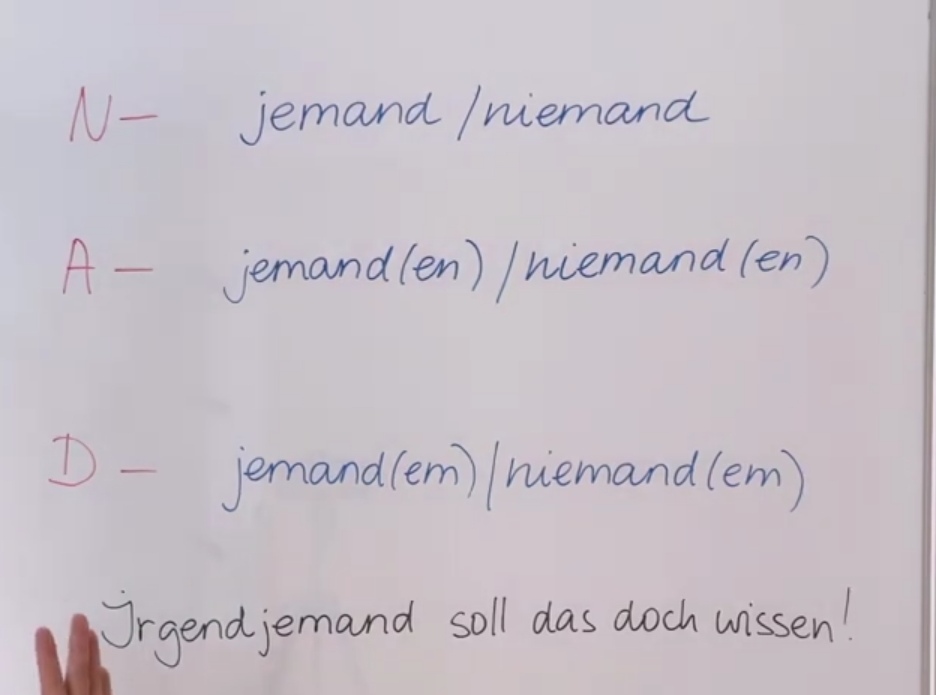 N – jemand / niemand
A – jemand(en) / niemand(en)
D – jemand(em) / niemand(em)
Irgendjemand soll das doch wissen!